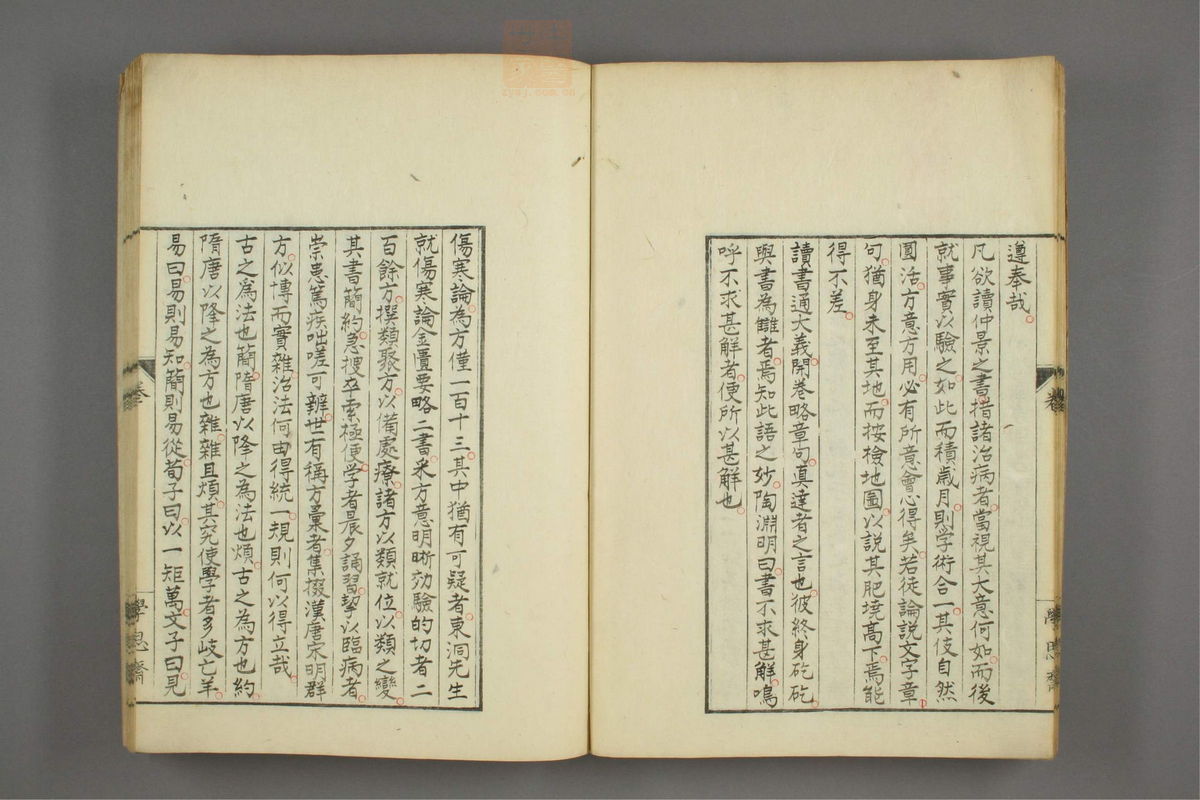 遵奉哉
凡欲讀仲景之書措諸治病者當視其大意何如而後
就事實以驗之如此而積歲月則学術合一其伎自然
圓活方意方用必有所意會心得矣若徒論說文字章
句猶身未至其地而按檢地圖以說其肥墝高下焉能
得不差
讀書通大義開巻略章句真達者之言也彼終身矻矻
與書為讎者焉知此語之妙陶淵明曰書不求甚解嗚
呼不求甚解者便所以甚解也
傷寒論為方僅一百十三其中猶有可疑者東洞先生
就傷寒論金匱要略二書采方意明晰効驗的切者二
百餘方撰類聚方以備處療諸方以類就位以類之變
其書簡約急搜卒索極便学者晨夕誦習挈以臨病者
崇患篤疾咄嗟可辨世有稱方彙者集掇漢唐宋明群
方似博而實雜治法何由得統一規則何以得立哉
古之為法也簡隋唐以降之為法也煩古之為方也約
隋唐以降之為方也雜雜且煩其究使學者多岐亡羊
易曰易則易知簡則易從荀子曰以一矩萬文子曰見
學思齋
zysj.com.cn